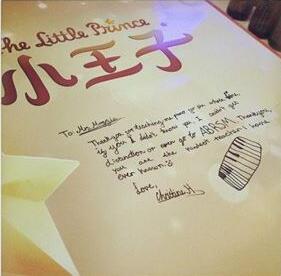 The Little Prince
小王子
To: Mrs.
Thankyou for teaching me piano for
if you I didn't know you. I couldn't get
distinction or even go to ABRSM. Thankyou,
you are the kindest teacher I have
ever known.
Love,
Christine H